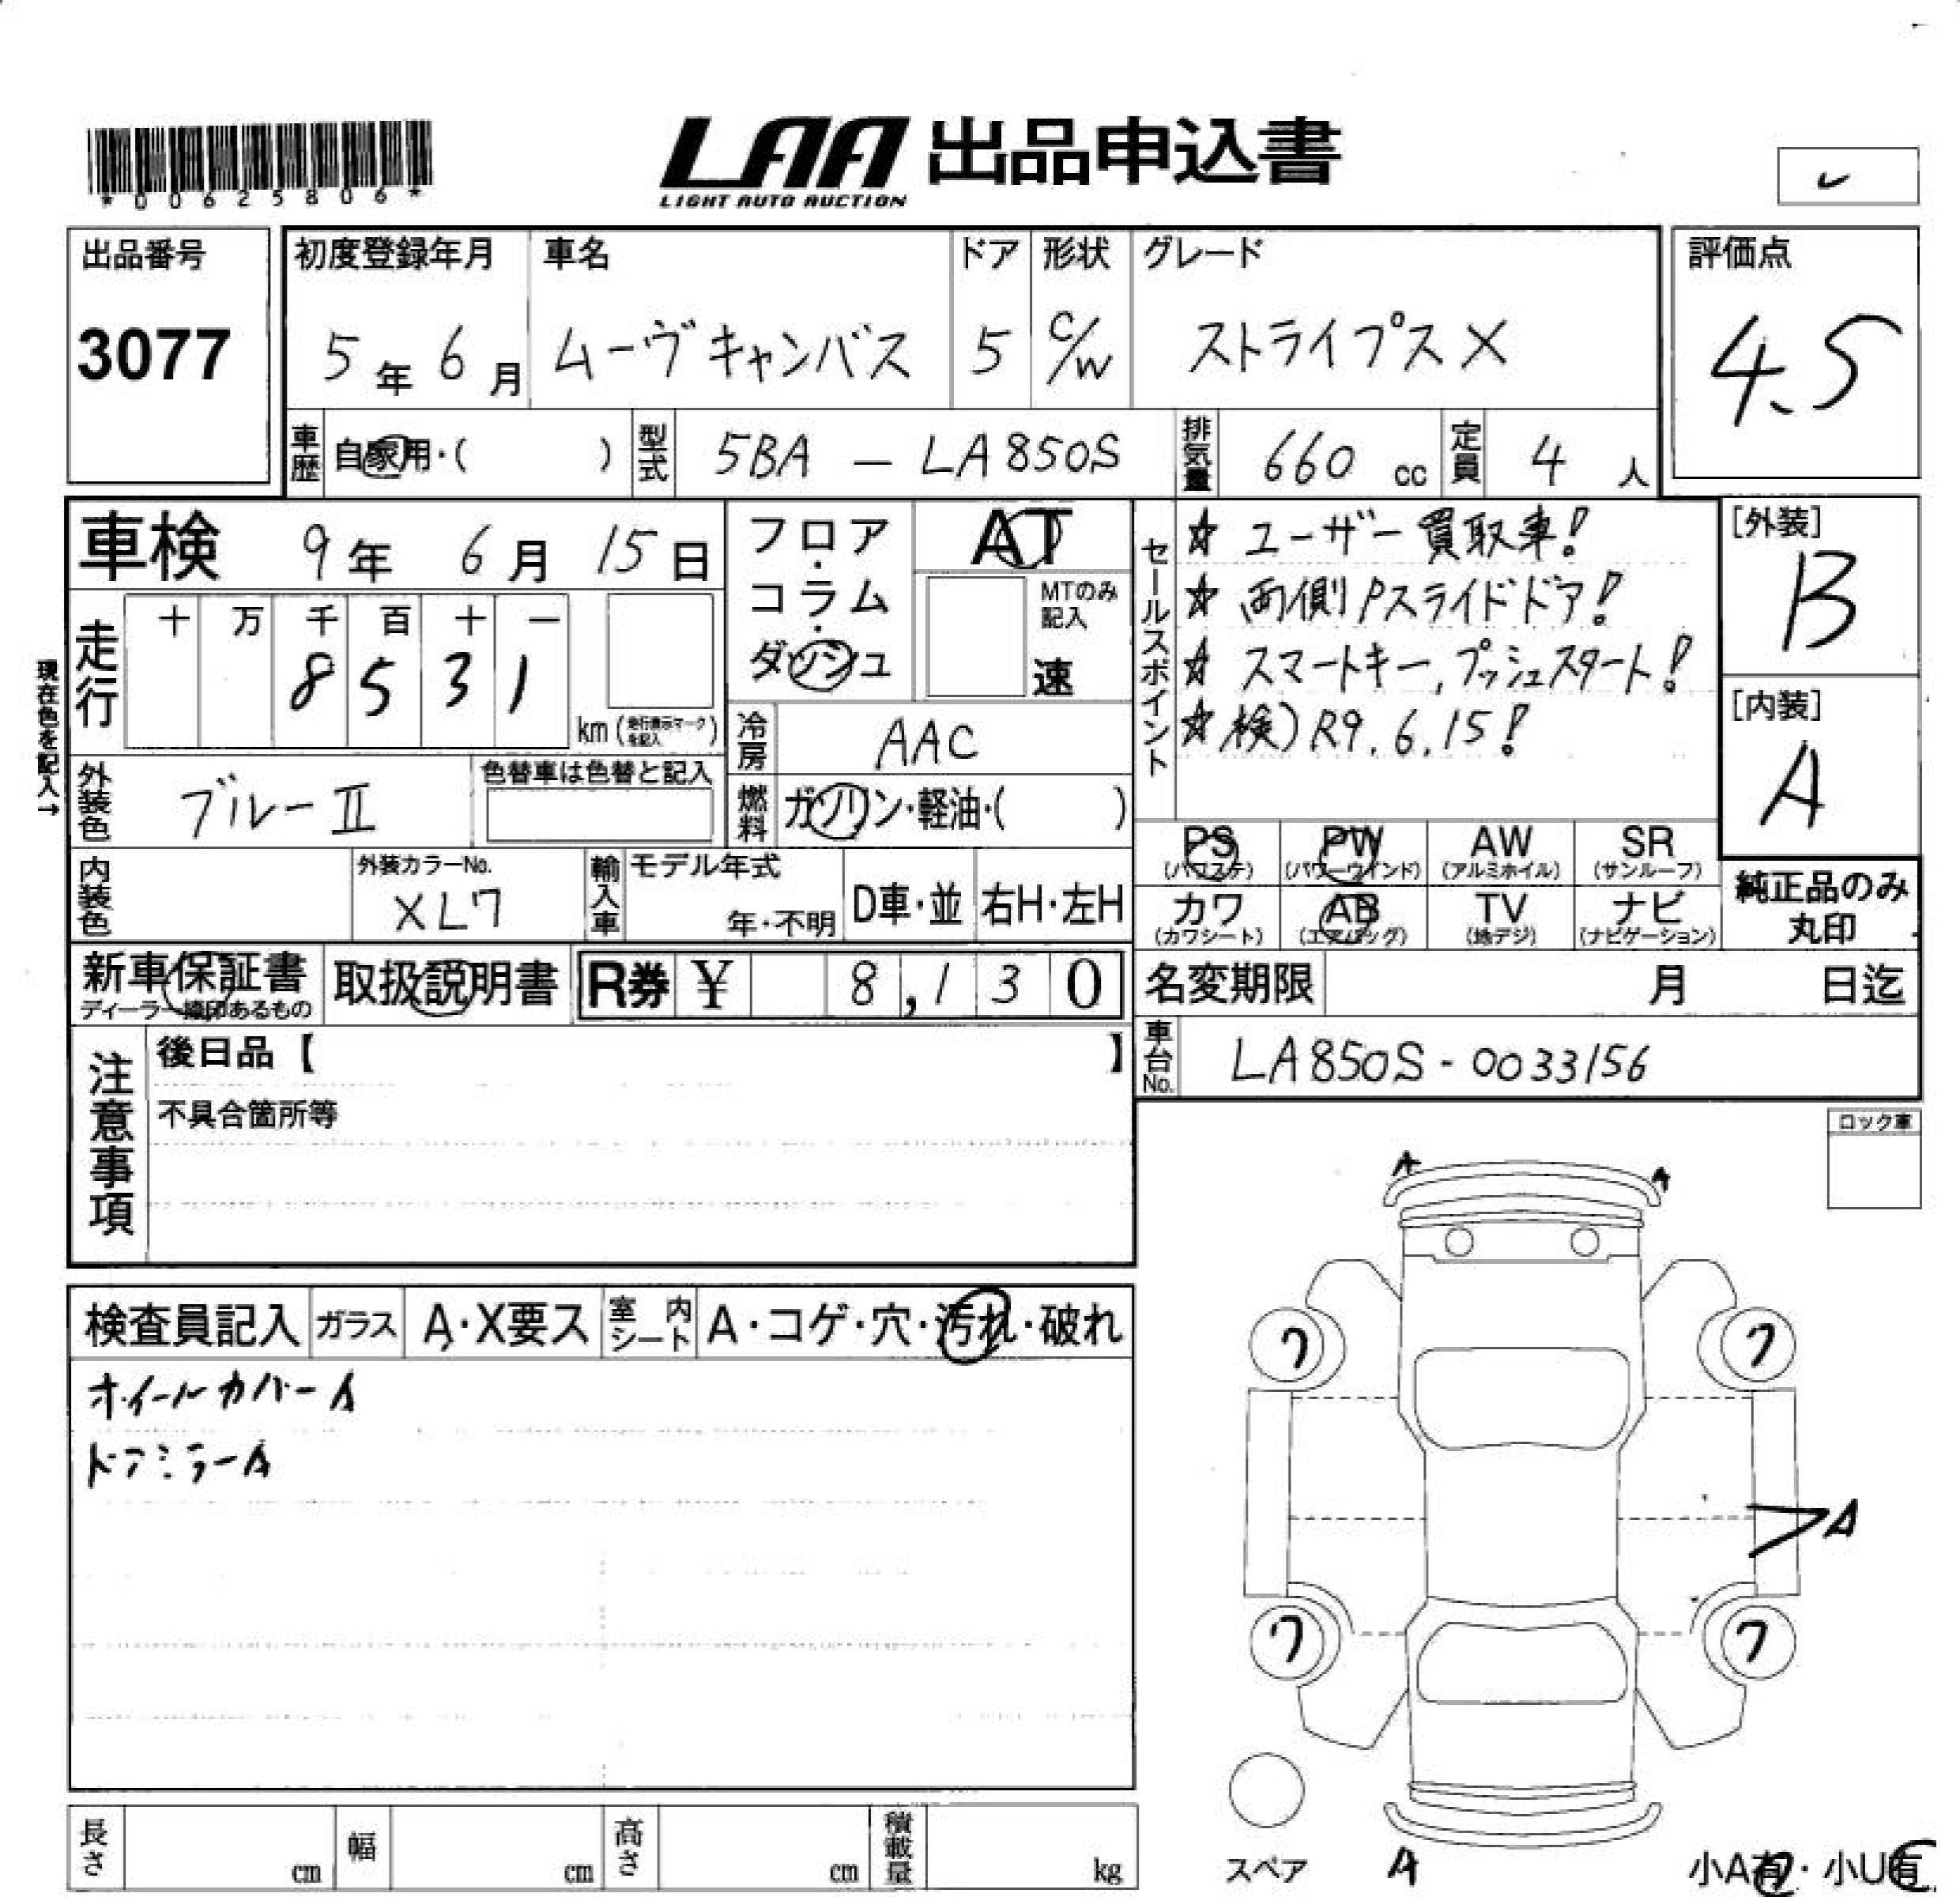 LAA 出品申込書
LIGHT AUTO AUCTION
*00625806*
出品番号
3077
初度登録年月
5年6月
車名
ムーヴキャンバス
ドア
5
形状
C/W
グレード
ストライプスX
評価点
4.5
車歴 自家用・( )
型式 5BA - LA850S
排気量 660 cc
定員 4 人
車検 9年 6月 15日
走行 十 万 千 百 十 一
8 5 3 1
km (走行表示マークを記入)
現在色を記入→
外装色 ブルーⅡ
色替車は色替と記入
フロア・コラム・ダッシュ
AT
MTのみ記入
速
冷房 AAC
燃料 ガソリン・軽油・( )
セールスポイント
☆ ユーザー買取車!
☆ 両側Pスライドドア!
☆ スマートキー, プッシュスタート!
☆ 検) R9.6.15!
[外装]
B
[内装]
A
内装色
外装カラーNo.
XL7
輸入車
モデル年式
年・不明
D車・並
右H・左H
PS (パワステ)
PW (パワーウインド)
AW (アルミホイル)
SR (サンルーフ)
カワ (カワシート)
AB (エアバッグ)
TV (地デジ)
ナビ (ナビゲーション)
純正品のみ丸印
新車保証書
ディーラー捺印あるもの
取扱説明書
R券 ¥ 8,130
名変期限 月 日迄
車台No. LA850S-0033156
注意事項
後日品【 】
不具合箇所等
ロック車
検査員記入 ガラス A・X要ス 室内シート A・コゲ・穴・汚れ・破れ
ホイールカバーA
ドアミラーA
A A
フ フ
A
フ フ
スペア
A
小A有・小U有
長さ cm 幅 cm 高さ cm 積載量 kg